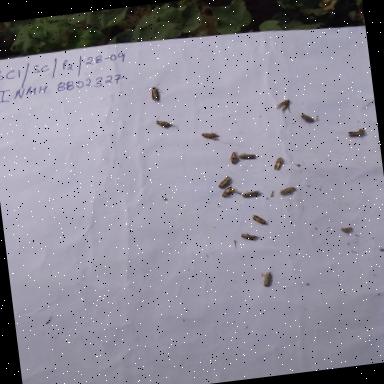 SCI/SC/Px/28-09
I-NMH 8802327